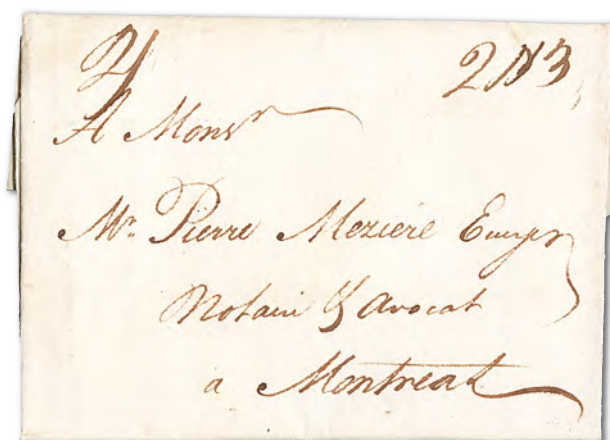 A Monsr
Mr. Pierre Meziere Ecuyer
Notaire & Avocat
a Montreal